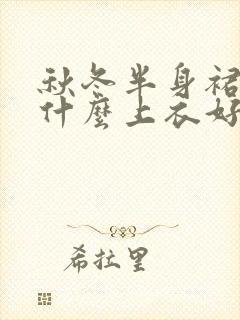 秋冬半身裙
什麼上衣好
希拉里